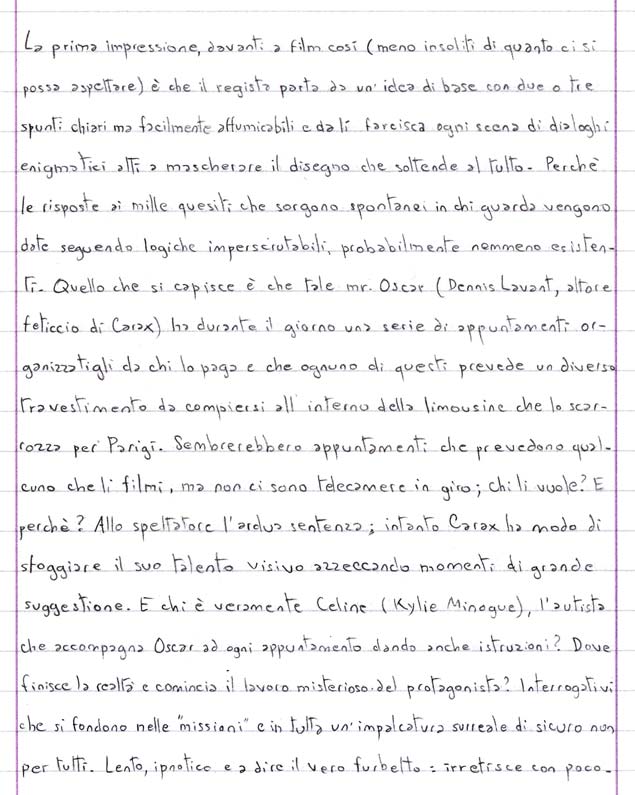 La prima impressione, davanti a film così (meno insoliti di quanto ci si
possa aspettare) è che il regista parta da un'idea di base con due o tre
spunti chiari ma facilmente affumicabili e da lì farcisca ogni scena di dialoghi
enigmatici atti a mascherare il disegno che sottende al tutto. Perchè
le risposte ai mille quesiti che sorgono spontanei in chi guarda vengono
date seguendo logiche imperscrutabili, probabilmente nemmeno esisten-
ti. Quello che si capisce è che tale mr. Oscar (Dennis Lavant, attore
feticcio di Carax) ha durante il giorno una serie di appuntamenti or-
ganizzatigli da chi lo paga e che ognuno di questi prevede un diverso
travestimento da compiersi all'interno della limousine che lo scar-
rozza per Parigi. Sembrerebbero appuntamenti che prevedono qual-
cuno che li filmi, ma non ci sono telecamere in giro; chi li vuole? E
perchè? Allo spettatore l'ardua sentenza; intanto Carax ha modo di
sfoggiare il suo talento visivo azzeccando momenti di grande
suggestione. E chi è veramente Celine (Kylie Minogue), l'autista
che accompagna Oscar ad ogni appuntamento dando anche istruzioni? Dove
finisce la realtà e comincia il lavoro misterioso del protagonista? Interrogativi
che si fondono nelle "missioni" e in tutta un'impalcatura surreale di sicuro non
per tutti. Lento, ipnotico e a dire il vero furbetto: irretisce con poco.